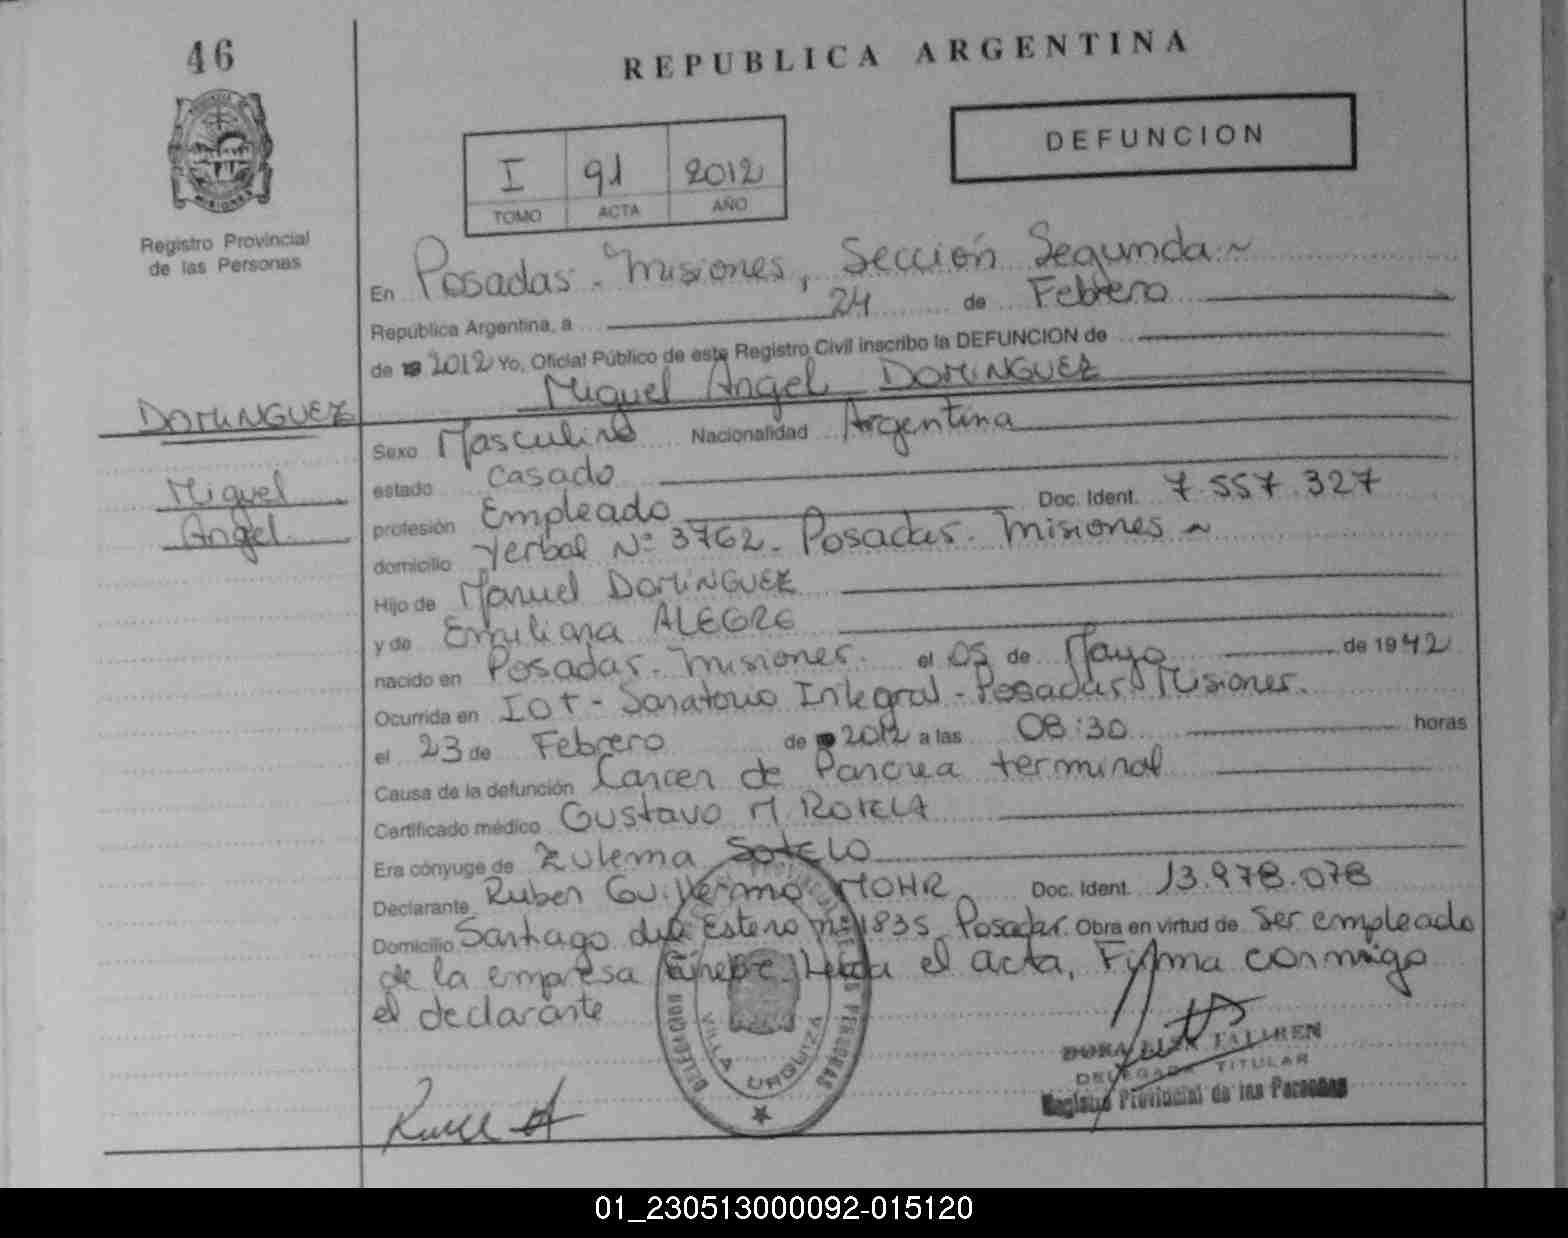 46
REPUBLICA ARGENTINA
DEFUNCION
I 91 2012
TOMO ACTA AÑO
Registro Provincial
de las Personas
En Posadas - Misiones, Sección Segunda ~
República Argentina, a 24 de Febrero
de 2012 Yo, Oficial Público de este Registro Civil inscribo la DEFUNCION de
Miguel Angel DOMINGUEZ
DOMINGUEZ
Miguel
Angel
Sexo Masculino Nacionalidad Argentina
estado Casado
profesión Empleado Doc. Ident. 7.557.327
domicilio Yerbal Nº 3762 - Posadas - Misiones ~
Hijo de Manuel DOMINGUEZ
y de Emiliana ALEGRE
nacido en Posadas - Misiones. el 05 de Mayo de 1942
Ocurrida en IOT - Sanatorio Integral - Posadas Misiones.
el 23 de Febrero de 2012 a las 08:30 horas
Causa de la defunción Cancer de Pancrea terminal
Certificado médico Gustavo M ROTELA
Era cónyuge de Zulema SOTELO
Declarante Ruben Guillermo MOHR Doc. Ident. 13.978.078
Domicilio Santiago del Estero nº 1835 Posadas. Obra en virtud de Ser empleado
de la empresa Leida el acta, Firma conmigo
el declarante
VILLA URQUIZA
DELEGADA TITULAR
Registro Provincial de las Personas
01_230513000092-015120